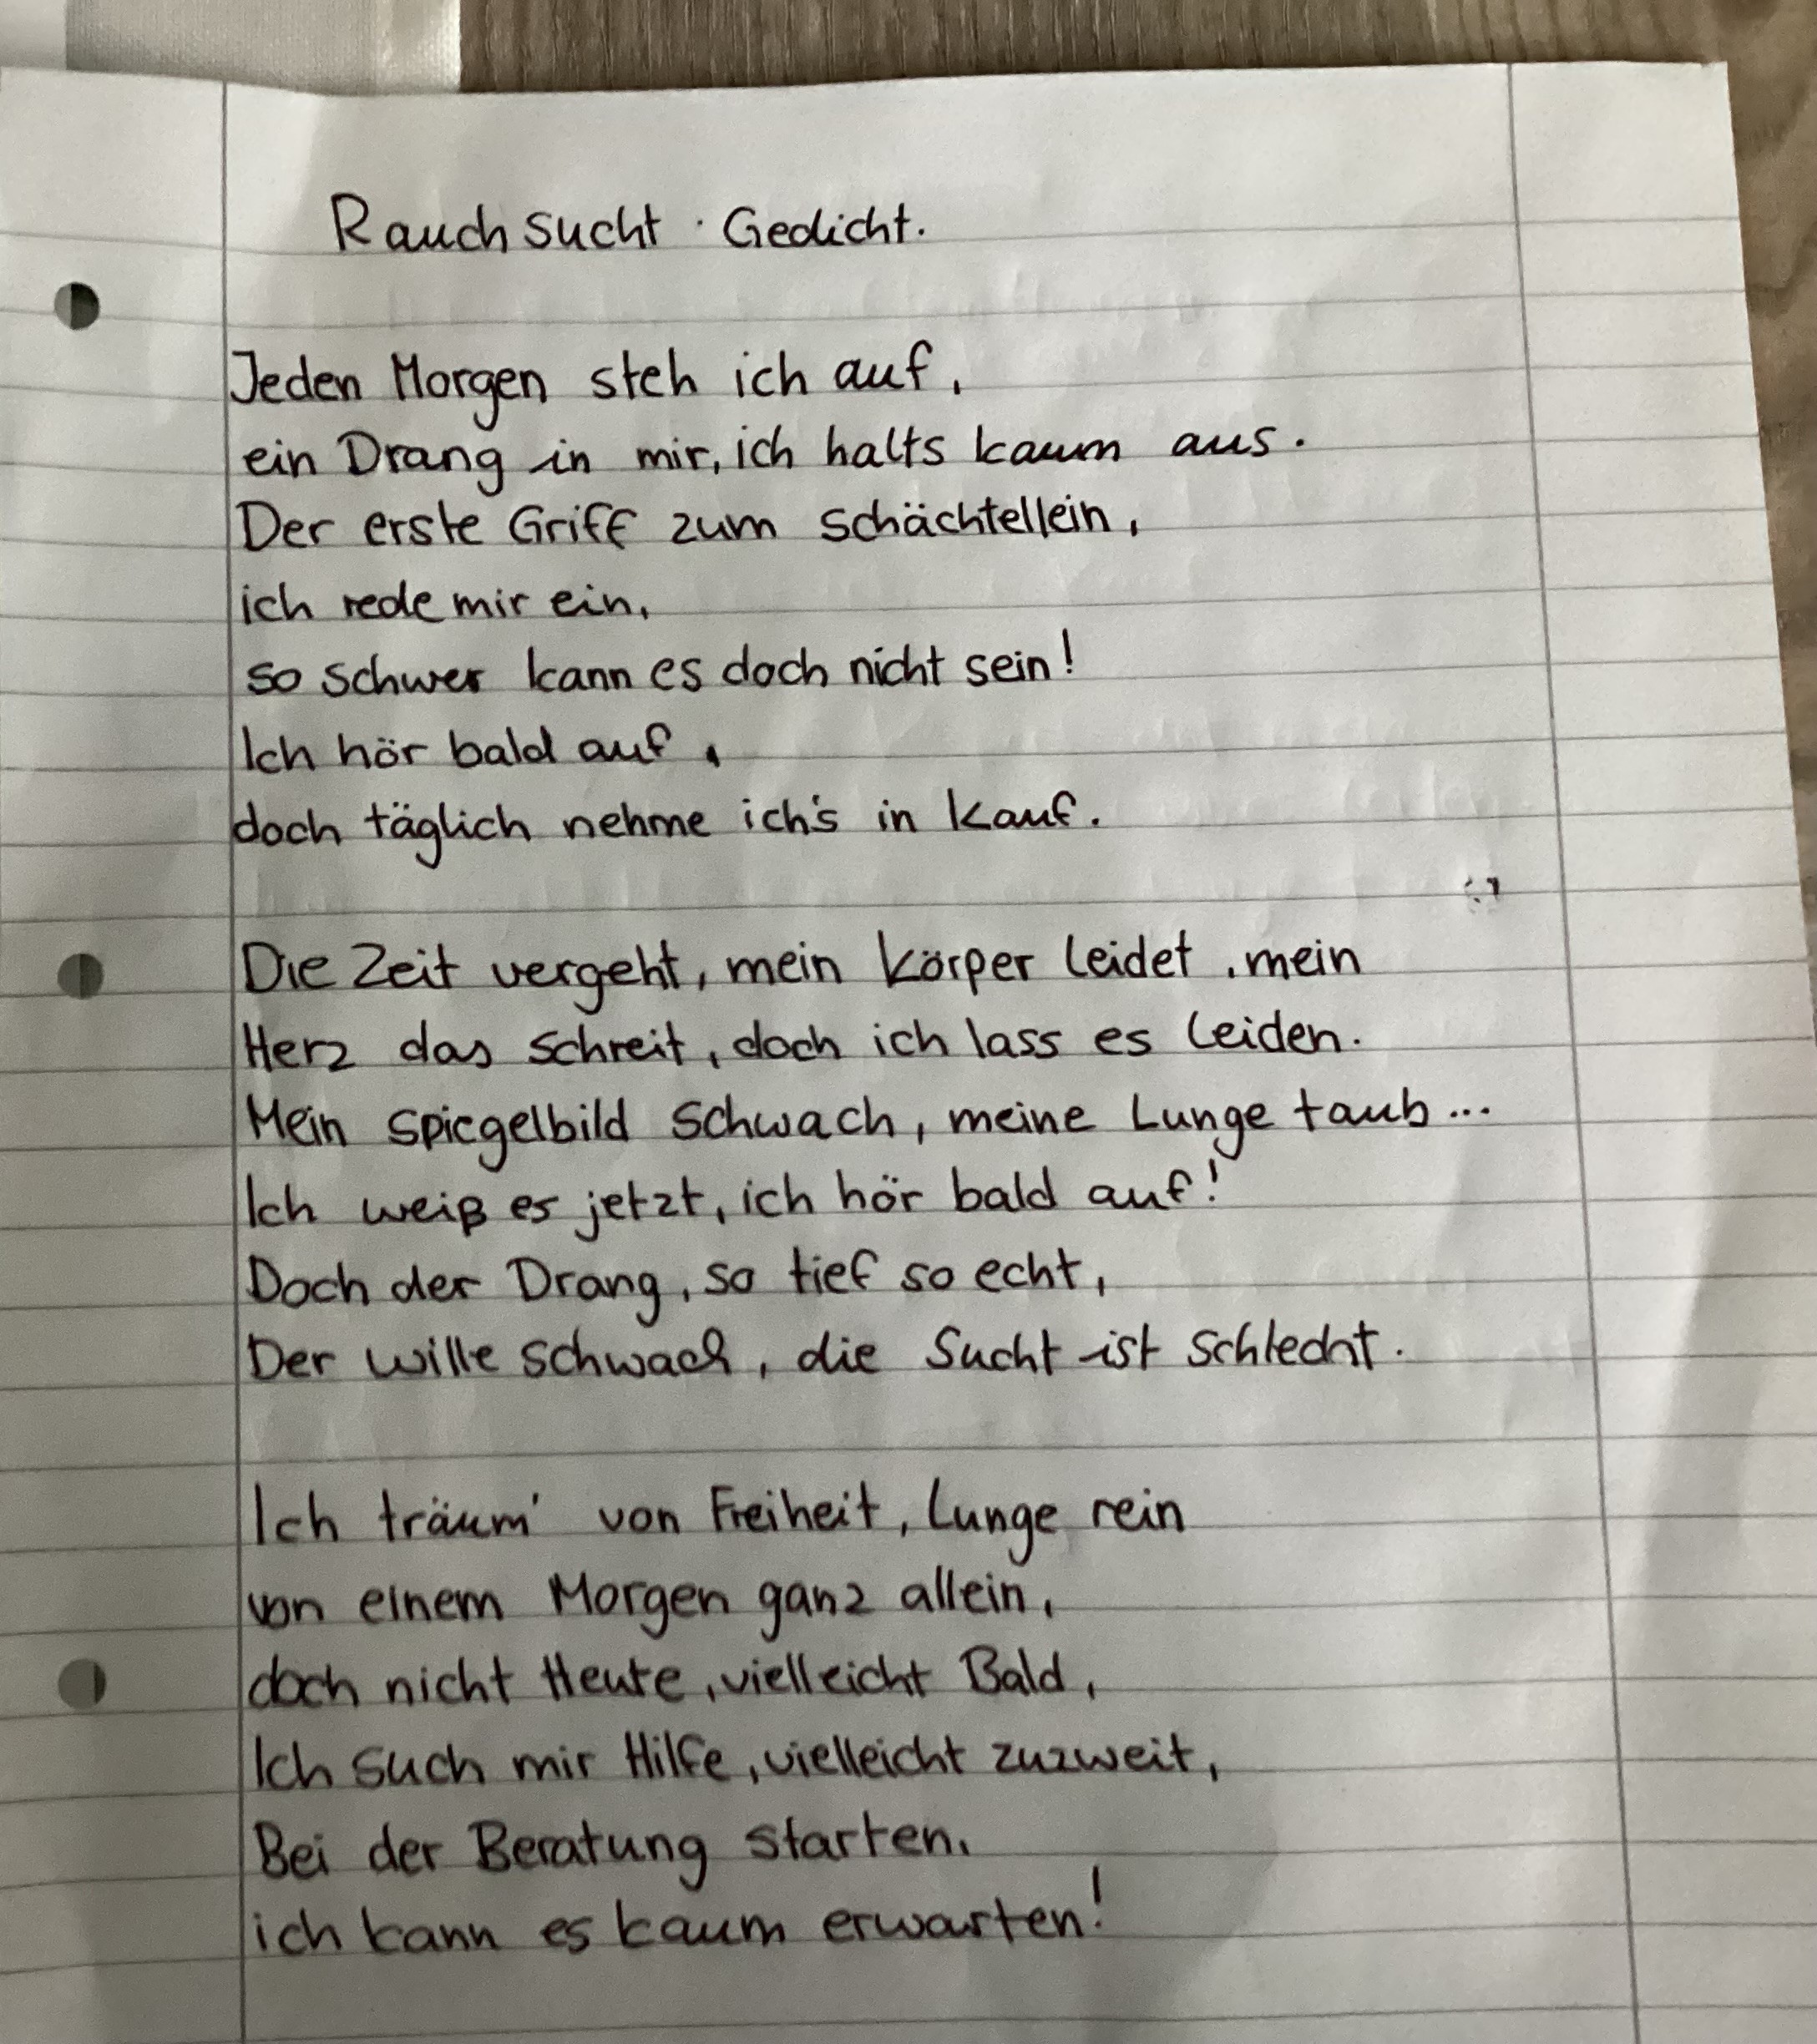 Rauchsucht · Gedicht.
Jeden Morgen steh ich auf,
ein Drang in mir, ich halts kaum aus.
Der erste Griff zum schächtellein,
ich rede mir ein,
so schwer kann es doch nicht sein!
Ich hör bald auf,
doch täglich nehme ich's in Kauf.
Die Zeit vergeht, mein Körper leidet, mein
Herz das schreit, doch ich lass es leiden.
Mein Spiegelbild schwach, meine Lunge taub...
Ich weiß es jetzt, ich hör bald auf!
Doch der Drang, so tief so echt,
Der wille schwach, die Sucht ist schlecht.
Ich träum' von Freiheit, Lunge rein
von einem Morgen ganz allein,
doch nicht Heute, vielleicht Bald,
Ich such mir Hilfe, vielleicht zuzweit,
Bei der Beratung starten,
ich kann es kaum erwarten!